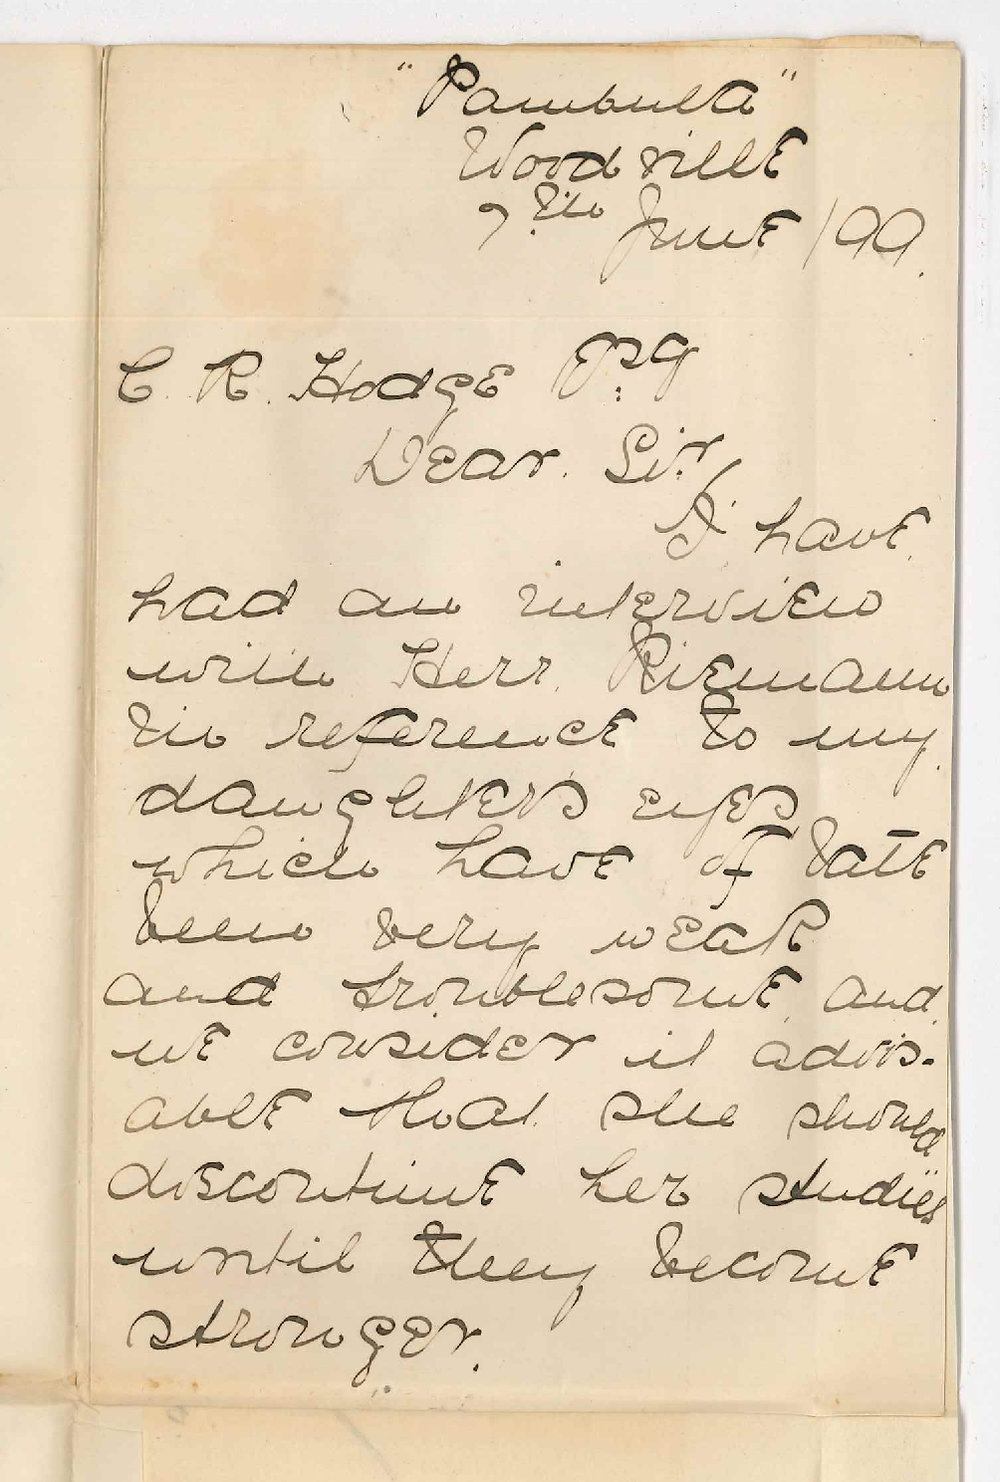 "Pambula"
Woodville
7th June /99.
C. R. Hodge Esq
Dear. Sir,
I have
had an interview
with Herr. Riemann
in reference to my
daughters eyes
which have of late
been very weak
and troublesome and
we consider it advis-
able that she should
discontinue her studies
until they become
stronger.